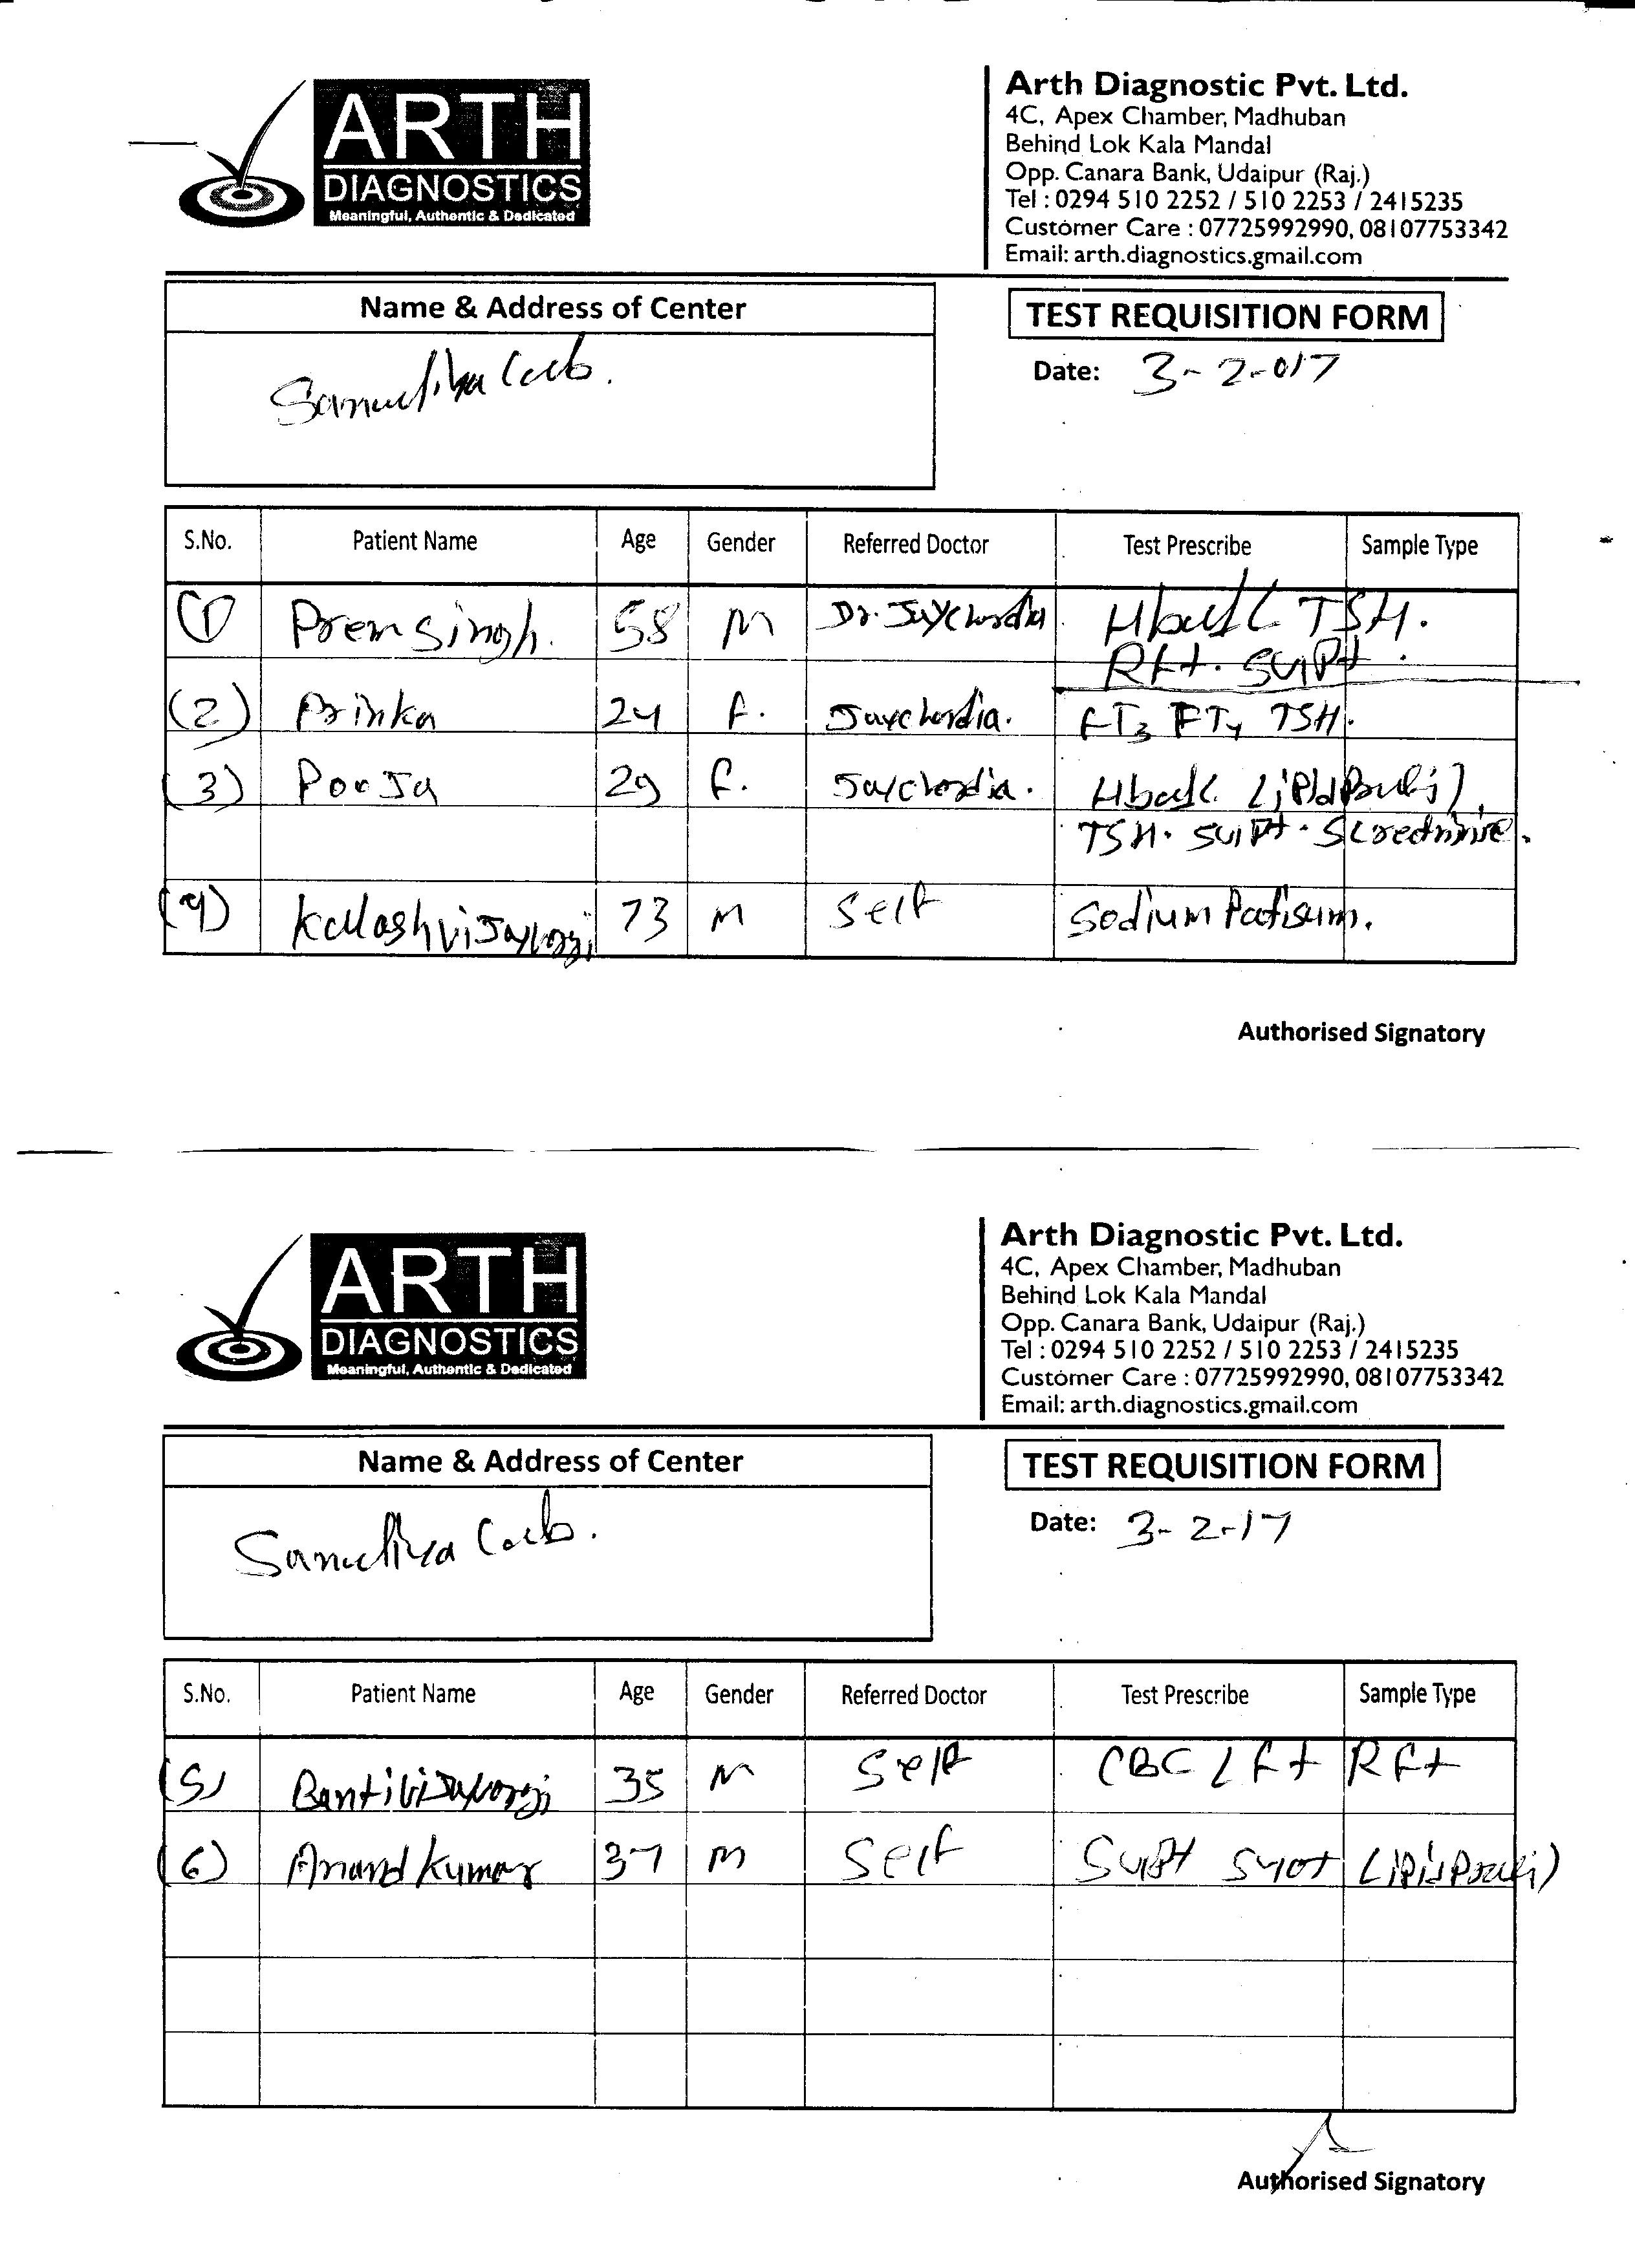 ARTH
DIAGNOSTICS
Meaningful, Authentic & Dedicated
Arth Diagnostic Pvt. Ltd.
4C, Apex Chamber, Madhuban
Behind Lok Kala Mandal
Opp. Canara Bank, Udaipur (Raj.)
Tel : 0294 510 2252 / 510 2253 / 2415235
Customer Care : 07725992990, 08107753342
Email: arth.diagnostics.gmail.com
Name & Address of Center
TEST REQUISITION FORM
Date: 3-2-017
S.No. Patient Name Age Gender Referred Doctor Test Prescribe Sample Type
(1) Prem Singh. 58 M Dr. TSH.
Rft. SGIPt.
(2) Prinka 24 F. FT3 FT4 TSH.
(3) Pooja 29 F. Lipid
TSH. SGIPt.
(4) 73 M Self Sodium
Authorised Signatory
ARTH
DIAGNOSTICS
Meaningful, Authentic & Dedicated
Arth Diagnostic Pvt. Ltd.
4C, Apex Chamber, Madhuban
Behind Lok Kala Mandal
Opp. Canara Bank, Udaipur (Raj.)
Tel : 0294 510 2252 / 510 2253 / 2415235
Customer Care : 07725992990, 08107753342
Email: arth.diagnostics.gmail.com
Name & Address of Center
TEST REQUISITION FORM
Date: 3-2-17
S.No. Patient Name Age Gender Referred Doctor Test Prescribe Sample Type
(5) 35 M Self CBC Lft Rft
(6) Anand Kumar 37 M Self Lipid
Authorised Signatory